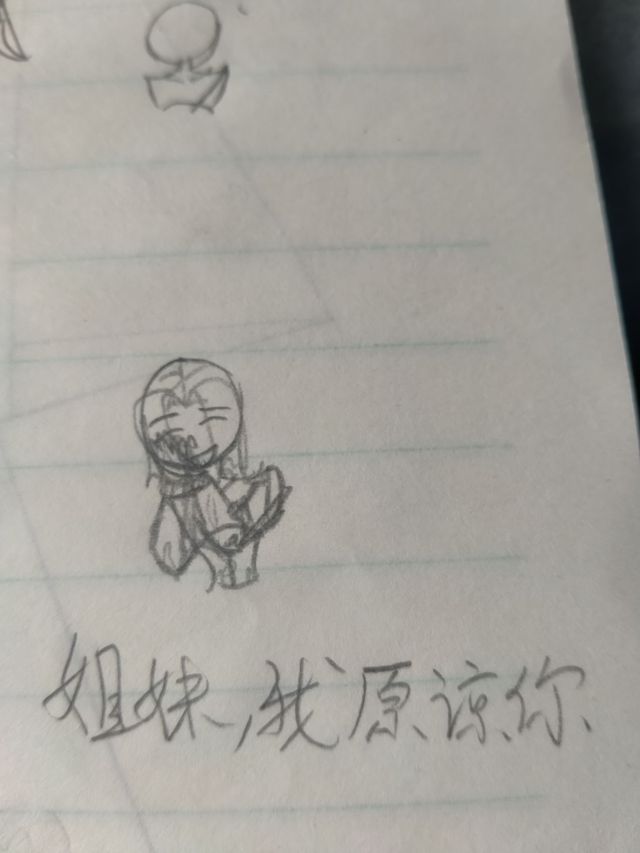 姐妹,我原谅你